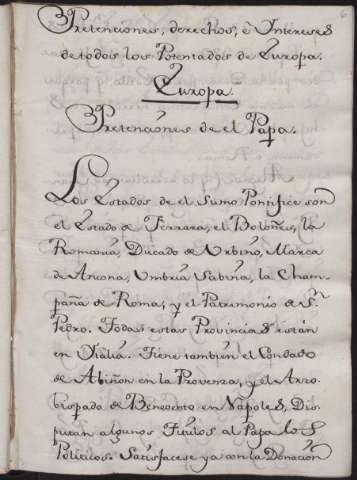 Pretenciones, derechos, è Interese8
de todos los Potentados de Europa.
Europa.
Pretenciones de el Papa.
Los Estados de el Sumo Pontifice son
el Estado de Ferrara, el Boloñes, la
Romania, Ducado de Urbino, Marca
de Ancona, Umbria Sabina, la Cham-
paña de Roma, y el Patrimonio de S.n
Pedro. Todas estas Provincias estàn
en Italia. Tiene tambien el Condado
de Abiñon en la Provenza, y el Arzo-
bispado de Benevento en Napoles, Dis
putan algunos Titulos al Papa los
Politicos. Satisfacese ya con la Donacion